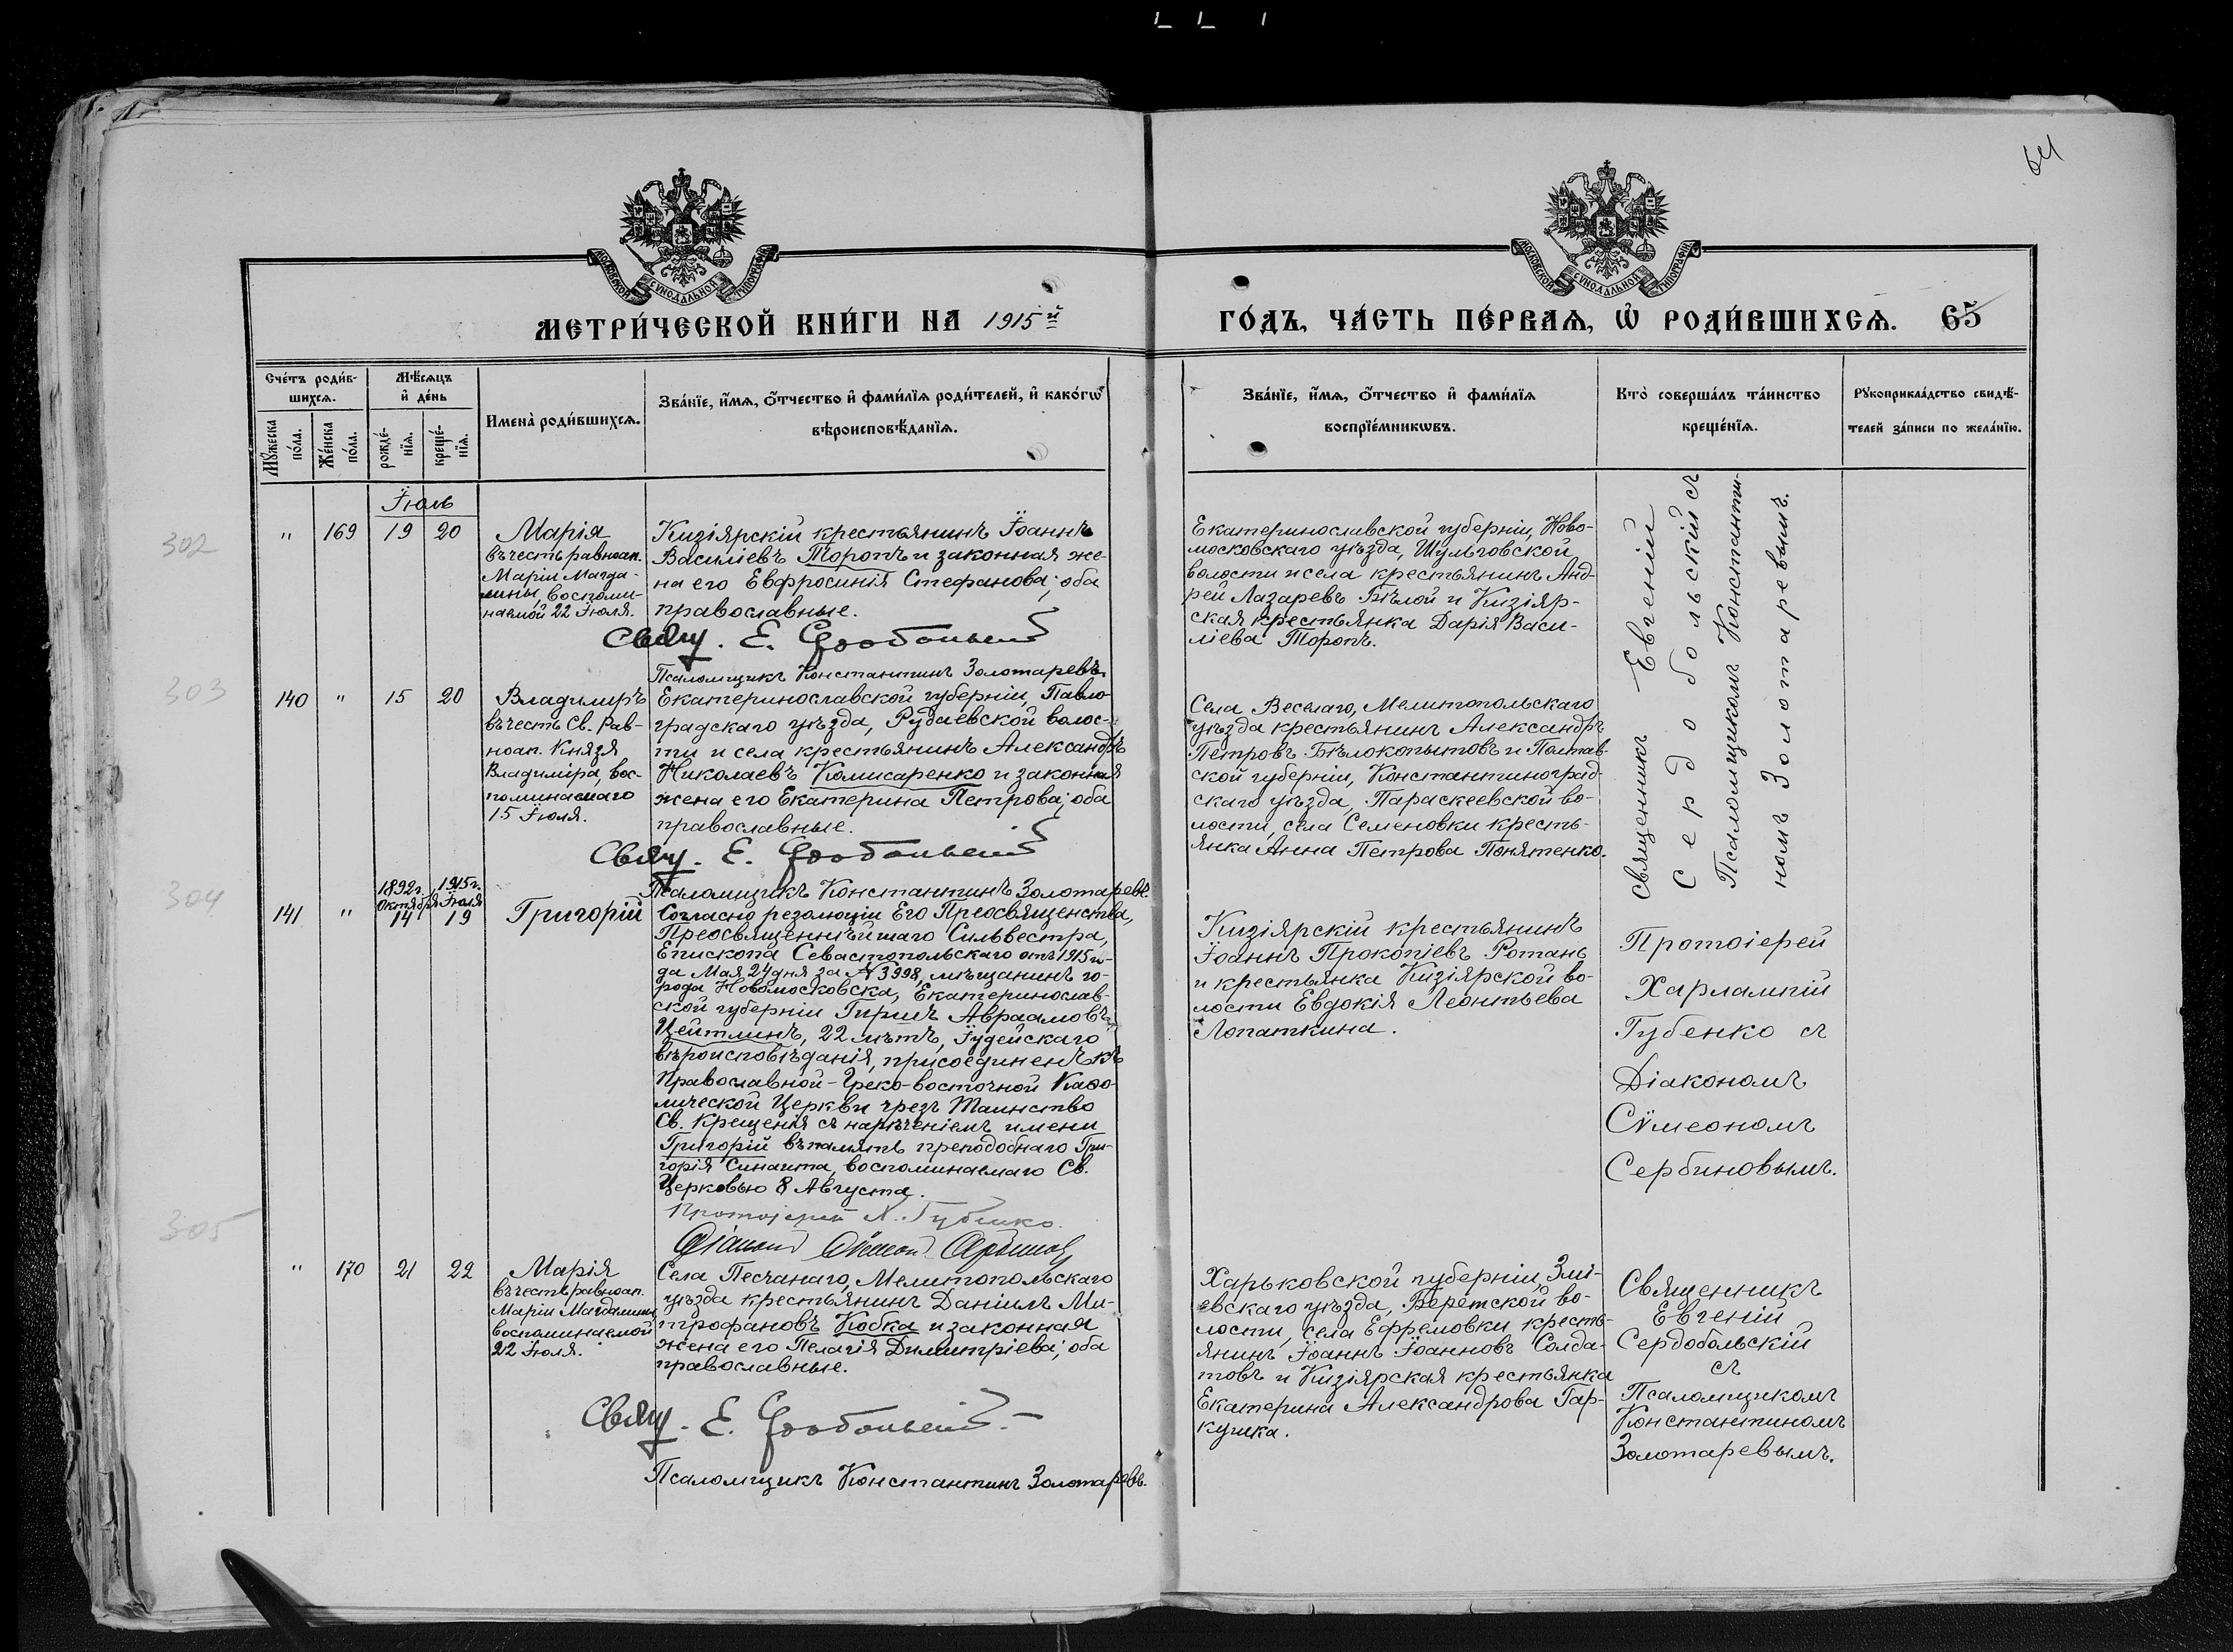 64
МОСКОВСКОЙ СѴНОДАЛЬНОЙ ТИПОГРАФІИ
МОСКОВСКОЙ СѴНОДАЛЬНОЙ ТИПОГРАФІИ
МЕТРИ́ЧЕСКОЙ КНИ́ГИ НА 1915й
ГО́ДЪ, ЧА́СТЬ ПЕ́РВАѦ, Ѡ҆ РОДИ́ВШИХСѦ. 65
Сче́тъ роди́в-
шихсѧ.
Мꙋ́жеска
по́ла.
Же́нска
по́ла.
Мѣ́сѧцъ
и҆ де́нь
рожде́-
нїѧ.
креще́-
нїѧ.
Имена̀ роди́вшихсѧ.
Зва́нїе, и҆́мѧ, ѻ҆́тчество и҆ фами́лїѧ роди́телей, и҆ како́гѡ
вѣроисповѣ́данїѧ.
Зва́нїе, и҆́мѧ, ѻ҆́тчество и҆ фами́лїѧ
воспрїе́мникѡвъ.
Кто̀ соверша́лъ та́инство
креще́нїѧ.
Рꙋкоприкла́дство свидѣ́-
телей за́писи по жела́нїю.
302
Іюль
" 169 19 20
Марія
въ честь равноап.
Маріи Магда-
лины, воспоми-
наемой 22 Іюля.
Кизіярскій крестьянинъ Іоаннъ
Василіевъ Торопъ и законная же-
на его Евфросинія Стефанова; оба
православные.
Свящ. Е. Сердобольскій
Псаломщикъ Константинъ Золотаревъ
Екатеринославской губерніи, Ново-
московскаго уѣзда, Шульговской
волости и села крестьянинъ Анд-
рей Лазаревъ Бѣлой и Кизіяр-
ская крестьянка Дарія Васи-
ліева Торопъ.
Священникъ Евгеній
Сердобольскій съ
Псаломщикомъ Константи-
номъ Золотаревымъ.
303
140 " 15 20
Владимиръ
въ честь Св. Рав-
ноап. Князя
Владиміра, вос-
поминаемаго
15 Іюля.
Екатеринославской губерніи, Павло-
градскаго уѣзда, Рудаевской волос-
ти и села крестьянинъ Александръ
Николаевъ Комисаренко и законная
жена его Екатерина Петрова; оба
православные.
Свящ. Е. Сердобольскій
Псаломщикъ Константинъ Золотаревъ.
Села Веселаго, Мелитопольскаго
уѣзда крестьянинъ Александръ
Петровъ Бѣлокопытовъ и Полтав-
ской губерніи, Константиноград-
скаго уѣзда, Параскеевской во-
лости, села Семеновки кресть-
янка Анна Петрова Понятенко.
304
1892г. 1915г.
Октября Іюля
141 " 14 19
Григорій
Согласно резолюціи Его Преосвященства,
Преосвященнѣйшаго Сильвестра,
Епископа Севастопольскаго отъ 1915 го-
да Мая 24 дня за №3998, мѣщанинъ го-
рода Новомосковска, Екатеринослав-
ской губерніи Гиршъ Авраамовъ
Цейтлинъ, 22 лѣтъ, Іудейскаго
вѣроисповѣданія, присоединенъ къ
Православной-Греко-восточной Каѳо-
лической Церкви чрезъ Таинство
Св. Крещенія съ нареченіемъ имени
Григорій въ память преподобнаго Гри-
горія Синаита, воспоминаемаго Св.
Церковью 8 Августа.
Протоіерей Х. Губенко.
Діаконъ Сѵмеонъ Сербиновъ
Кизіярскій крестьянинъ
Іоаннъ Прокопіевъ Ротань
и крестьянка Кизіярской во-
лости Евдокія Леонтьева
Лопаткина.
Протоіерей
Харлампій
Губенко съ
Діакономъ
Сѵмеономъ
Сербиновымъ.
305
" 170 21 22
Марія
въ честь равноап.
Маріи Магдалины
воспоминаемой
22 Іюля.
Села Песчанаго, Мелитопольскаго
уѣзда крестьянинъ Даніилъ Ми-
трофановъ Кюбка и законная
жена его Пелагія Димитріева; оба
православные.
Свящ. Е. Сердобольскій
Псаломщикъ Константинъ Золотаревъ.
Харьковской губерніи, Змі-
евскаго уѣзда, Беретской во-
лости, села Ефремовки кресть-
янинъ Іоаннъ Іоанновъ Солда-
товъ и Кизіярская крестьянка
Екатерина Александрова Гар-
кушка.
Священникъ
Евгеній
Сердобольскій
съ
Псаломщикомъ
Константиномъ
Золотаревымъ.